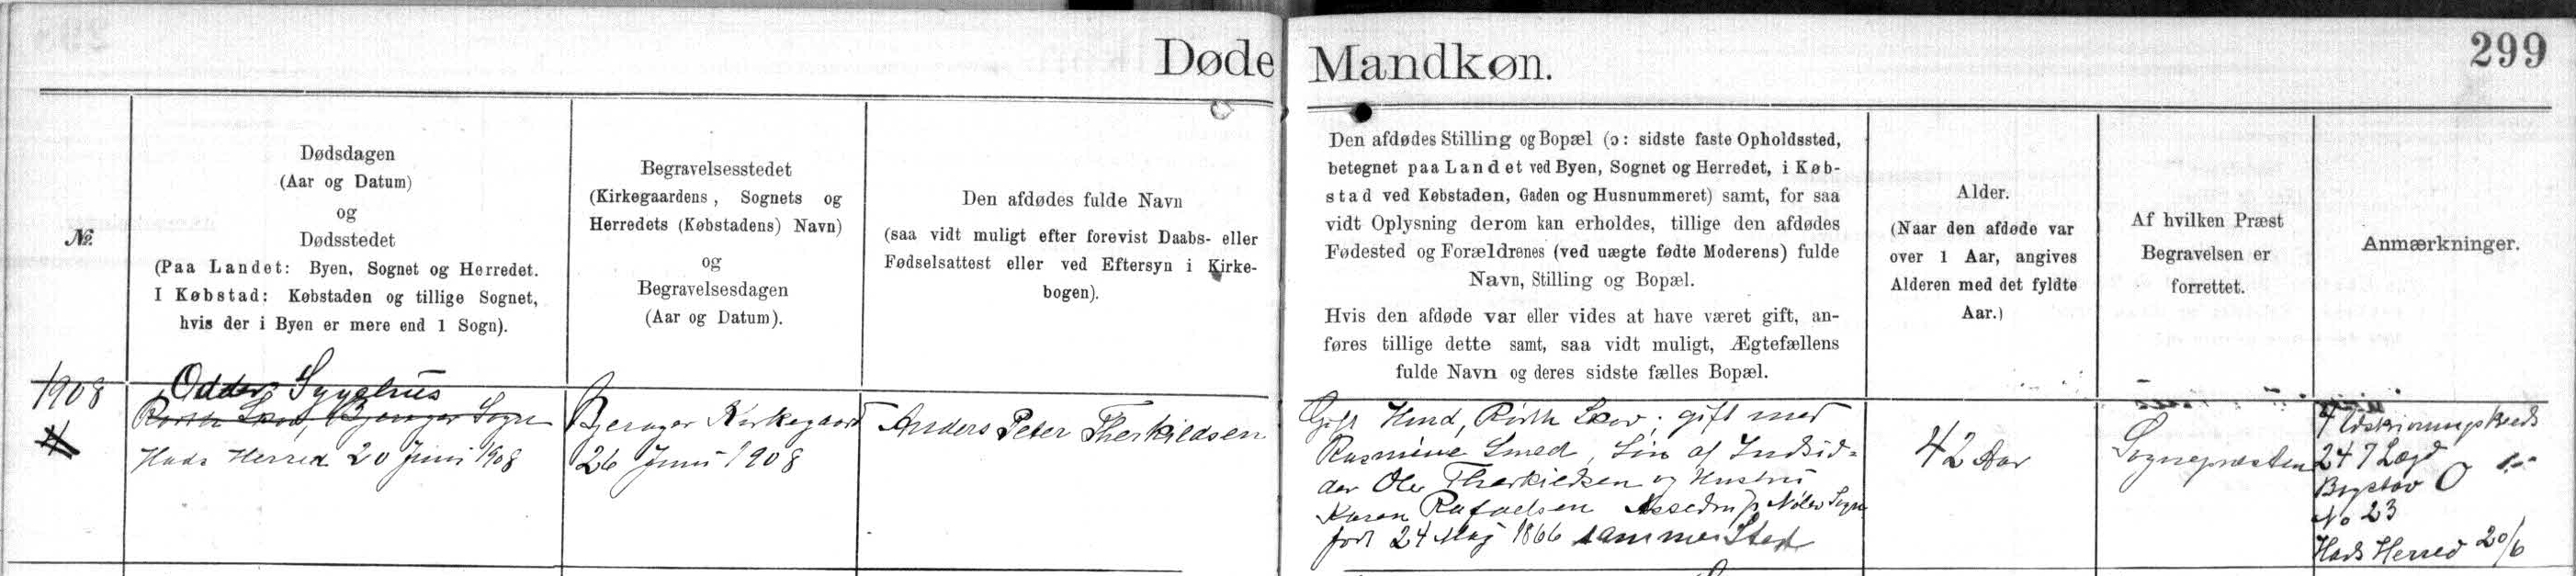 Døde Mandkøn.
299
№
Dødsdagen
(Aar og Datum)
og
Dødsstedet
(Paa Landet: Byen, Sognet og Herredet.
I Købstad: Købstaden og tillige Sognet,
hvis der i Byen er mere end 1 Sogn).
Begravelsesstedet
(Kirkegaardens, Sognets og
Herredets (Købstadens) Navn)
og
Begravelsesdagen
(Aar og Datum).
Den afdødes fulde Navn
(saa vidt muligt efter forevist Daabs- eller
Fødselsattest eller ved Eftersyn i Kirke-
bogen).
Den afdødes Stilling og Bopæl (ɔ: sidste faste Opholdssted,
betegnet paa Landet ved Byen, Sognet og Herredet, i Køb-
stad ved Købstaden, Gaden og Husnummeret) samt, for saa
vidt Oplysning derom kan erholdes, tillige den afdødes
Fødested og Forældrenes (ved uægte fødte Moderens) fulde
Navn, Stilling og Bopæl.
Hvis den afdøde var eller vides at have været gift, an-
føres tillige dette samt, saa vidt muligt, Ægtefællens
fulde Navn og deres sidste fælles Bopæl.
Alder.
(Naar den afdøde var
over 1 Aar, angives
Alderen med det fyldte
Aar.)
Af hvilken Præst
Begravelsen er
forrettet.
Anmærkninger.
1908
4
Odder Sygehus
Rørth Skov, Bjerager Sogn
Hads Herred 20 Juni 1908
Bjerager Kirkegaard
26 Juni 1908
Anders Peter Therkildsen
Gift Mand, Rørth Skov; gift med
Rasmine Smed, Søn af Indsid-
der Ole Therkildsen og Hustru
Karen Rafaelsen Assedrup Nølev Sogn
født 24 Maj 1866 sammesteds
42 Aar
Sognepræsten
4 Udskrivningskreds
247 Lægd
Bogstav O
No 23
Hads Herred 20/6